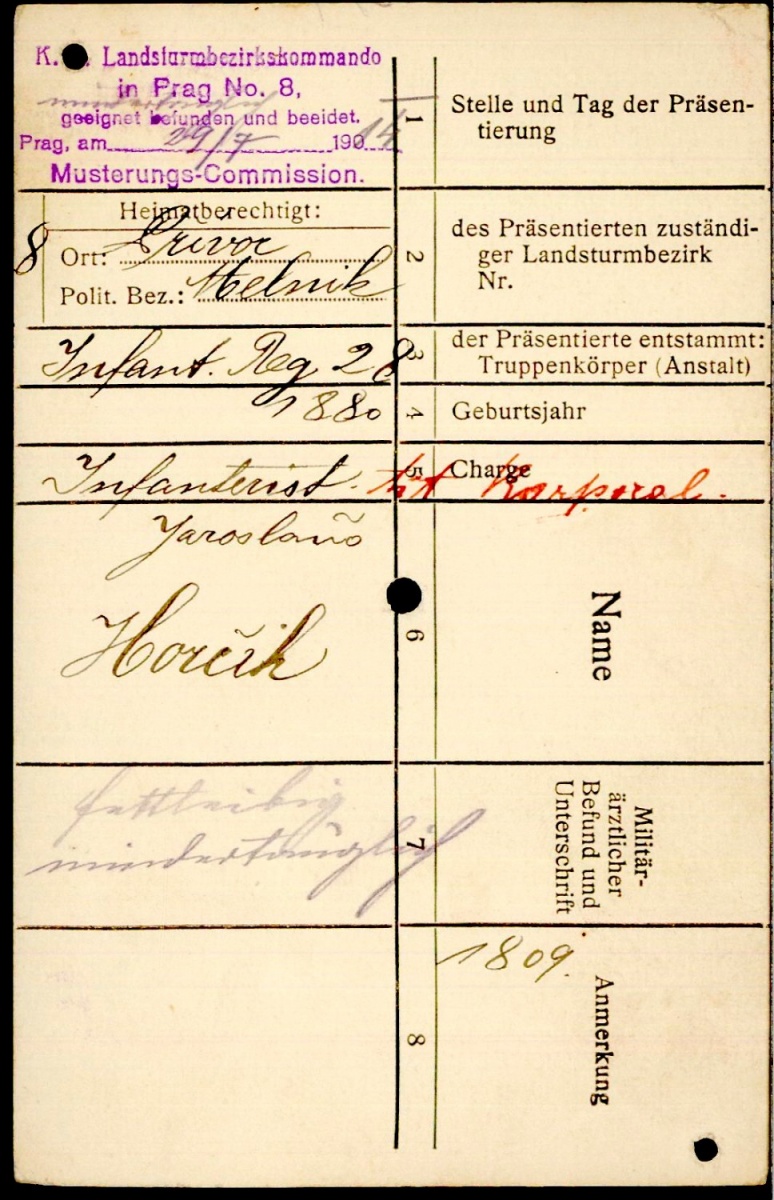 K. Landsturmbezirkskommando
in Prag No. 8,
mindertauglich
geeignet befunden und beeidet.
Prag, am 29/7 1914
Musterungs-Commission.
1
Stelle und Tag der Präsen-
tierung
Heimatberechtigt:
8
Ort:
Polit. Bez.: Melnik
2
des Präsentierten zuständi-
ger Landsturmbezirk
Nr.
Infant. Reg 28
3
der Präsentierte entstammt:
Truppenkörper (Anstalt)
1880
4
Geburtsjahr
Infanterist. tit Korporal.
5
Charge
Jaroslaus
Horčik
6
Name
fettleibig
mindertauglich
7
Militär-
ärztlicher
Befund und
Unterschrift
1809.
8
Anmerkung